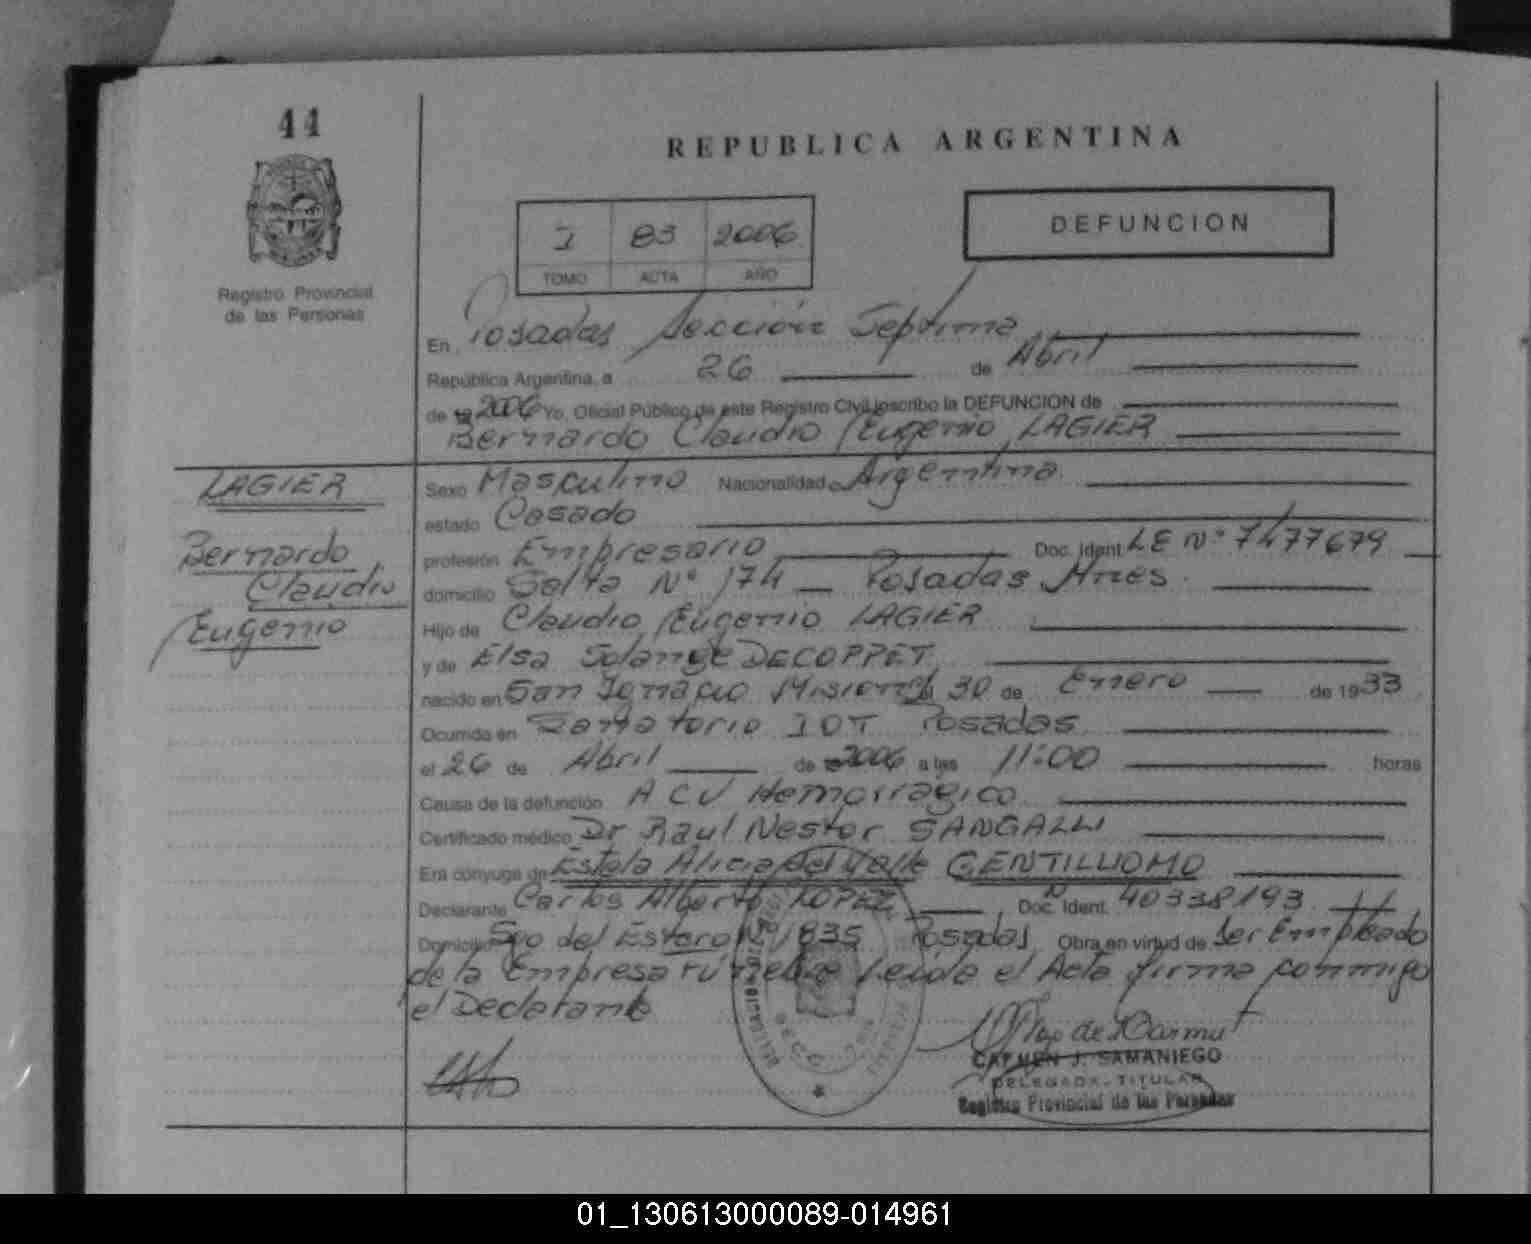 44
REPUBLICA ARGENTINA
I 83 2006
TOMO ACTA AÑO
DEFUNCION
Registro Provincial
de las Personas
En Posadas Sección Septima
República Argentina, a 26 de Abril
de 2006 Yo, Oficial Público de este Registro Civil inscribo la DEFUNCION de
Bernardo Claudio Eugenio LAGIER
LAGIER
Bernardo
Claudio
Eugenio
Sexo Masculino Nacionalidad Argentina
estado Casado
profesión Empresario Doc. Ident. LE Nº 7477679
domicilio Salta Nº 174 — Posadas Mnes.
Hijo de Claudio Eugenio LAGIER
y de Elsa Solange DECOPPET
nacido en San Ignacio Misiones el 30 de Enero de 1933
Ocurrida en Sanatorio IOT Posadas
el 26 de Abril de 2006 a las 11:00 horas
Causa de la defunción ACV Hemorragico
Certificado médico Dr Raul Nestor SANGALLI
Era cónyuge de Estela Alicia del Valle GENTILUOMO
Declarante Carlos Alberto LOPEZ Doc. Ident. 40338193
Domicilio Sgo del Estero Nº 1835 Posadas Obra en virtud de Ser Empleado
de la Empresa Fúnebre Leída el Acta firma conmigo
el Declarante
CARMEN J. SAMANIEGO
DELEGADA TITULAR
Registro Provincial de las Personas
01_130613000089-014961